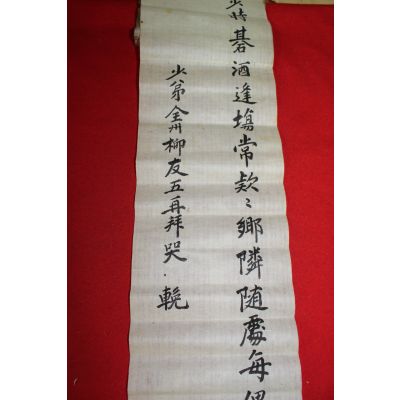 少時碁酒逢場常欵〻鄉隣随處每偲
少弟全州柳友五再拜哭·輓